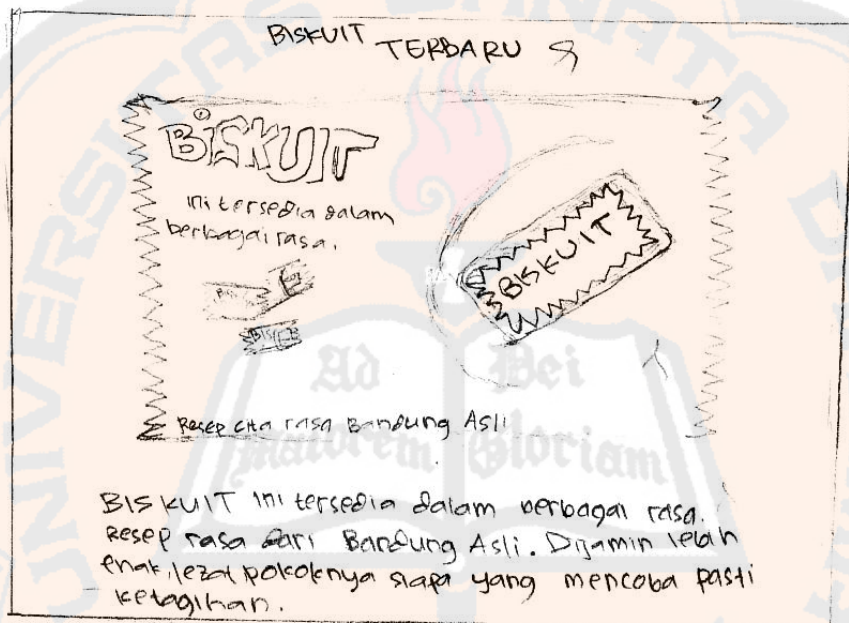 BISKUIT TERBARU
BISKUIT
ini tersedia dalam
berbagai rasa.
BISKUIT
Resep cita rasa Bandung Asli
BISKUIT ini tersedia dalam berbagai rasa.
Resep rasa dari Bandung Asli. Dijamin lebih
enak, lezat pokoknya siapa yang mencoba pasti
ketagihan.
Ad Dei
Maiorem Gloriam